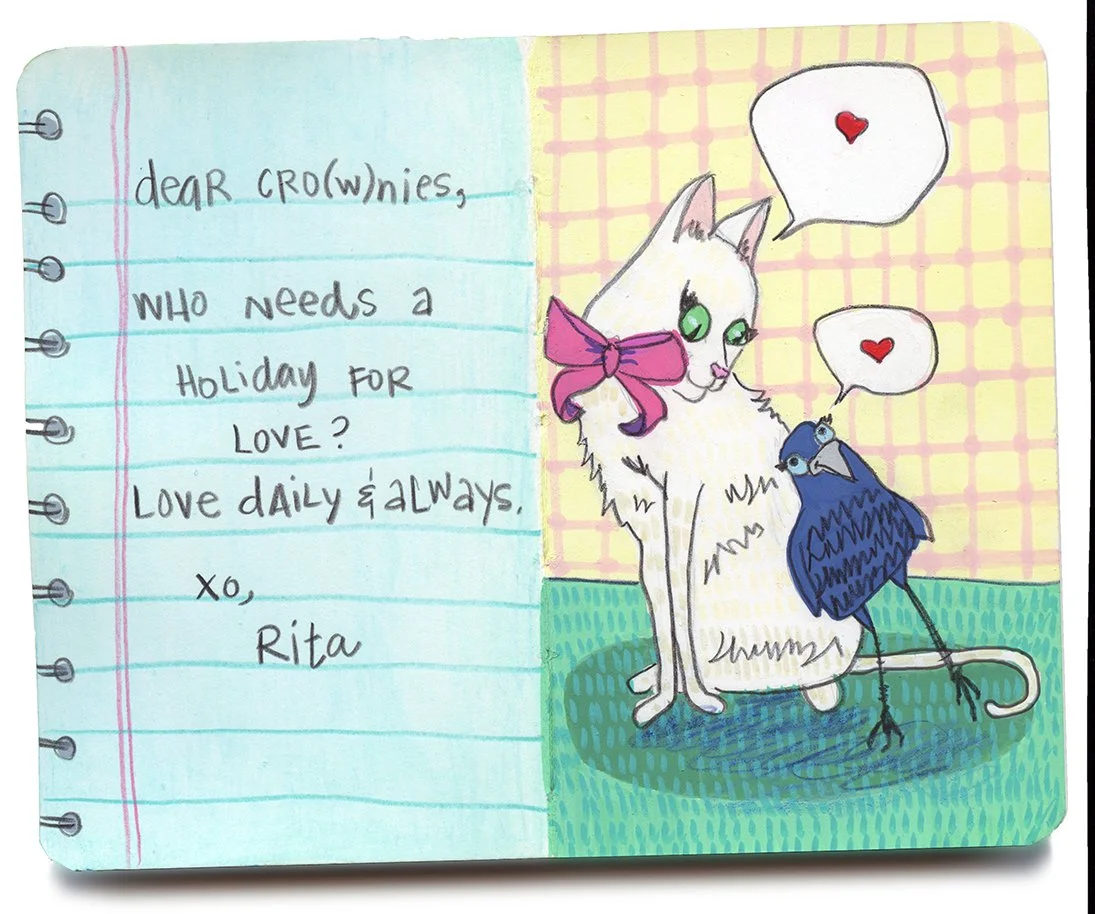 dear CRO(W)nies,
WHO Needs a
HoLiday FOR
LOVE?
LOVE dAiLy & aLWays.
xo,
Rita